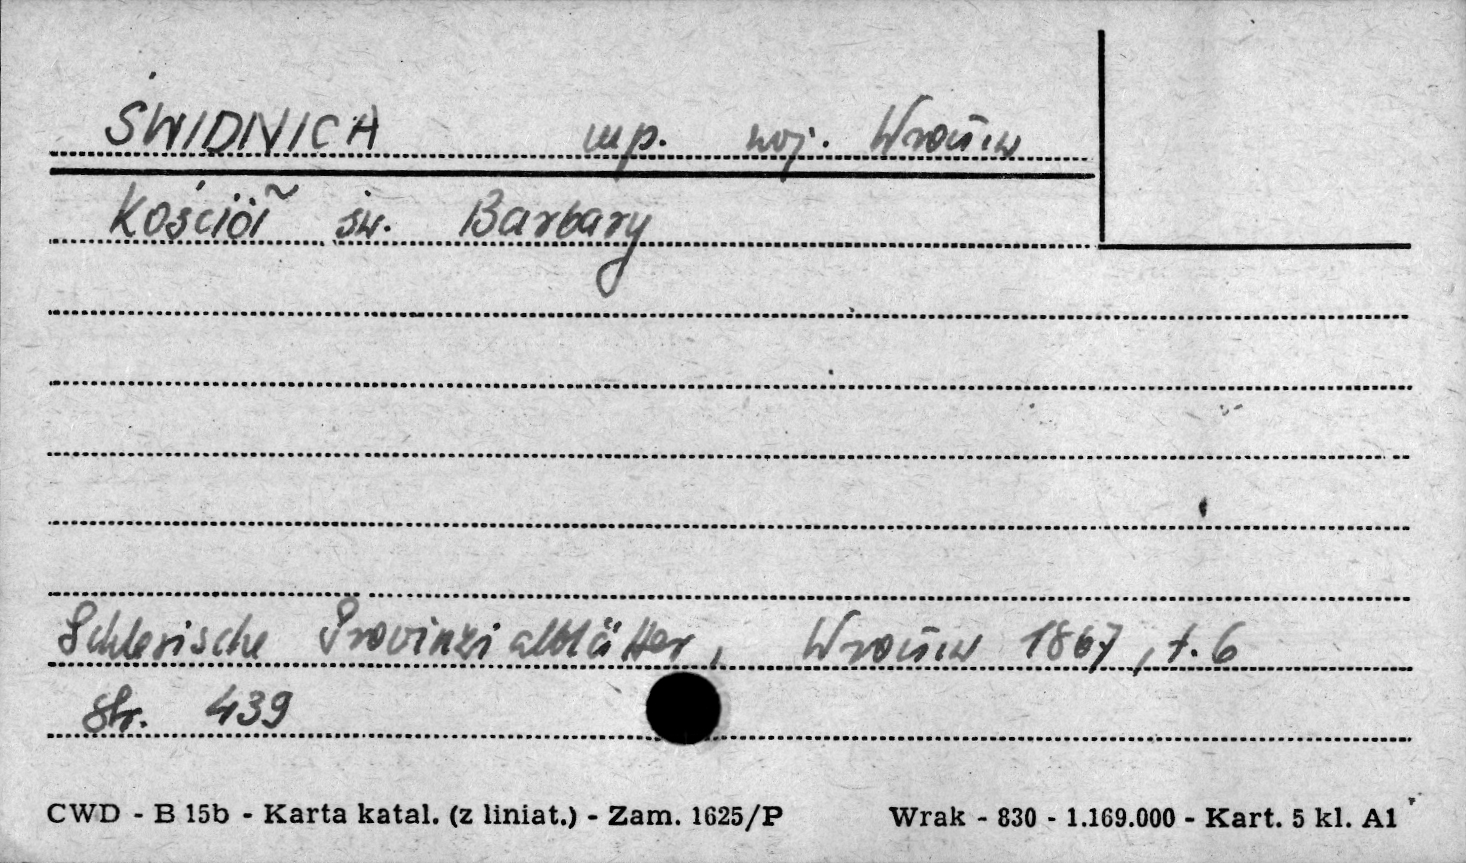 ŚWIDNICA mp. woj. Wrocław
Kościół św. Barbary
Schlesische Provinzialblätter, Wrocław 1867, t. 6
str. 439
CWD - B 15b - Karta katal. (z liniat.) - Zam. 1625/P Wrak - 830 - 1.169.000 - Kart. 5 kl. A1